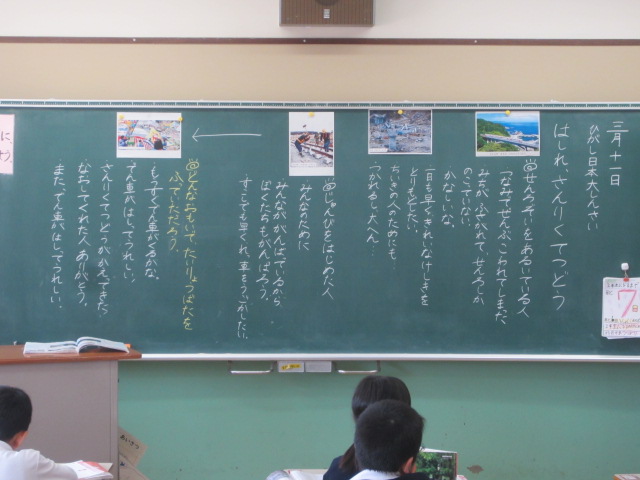 三月十一日
ひがし日本大しんさい
はしれ、さんりくてつどう
せんろぞいをあるいている人
「なんでぜんぶこわれてしまった、
みちがふさがれて、せんろしか
のこっていない。
かなしいな。
一日も早くきれいなけしきを
とりもどしたい。
ちいきの人のためにも。
つかれるし、大へん…
じゅんびをはじめた人
みんなのために
みんながんばっているから
ぼくたちもがんばろう。
すこしでも早くれっ車をうごかしたい。
どんなおもいで、たいりょうばたを
ふっていただろう。
もうすぐでん車がくるかな。
でん車がはしってうれしい。
さんりくてつどうがかえってきた。
なおしてくれた人、ありがとう。
また、でん車がはしってうれしい。
7
日
あいさつ